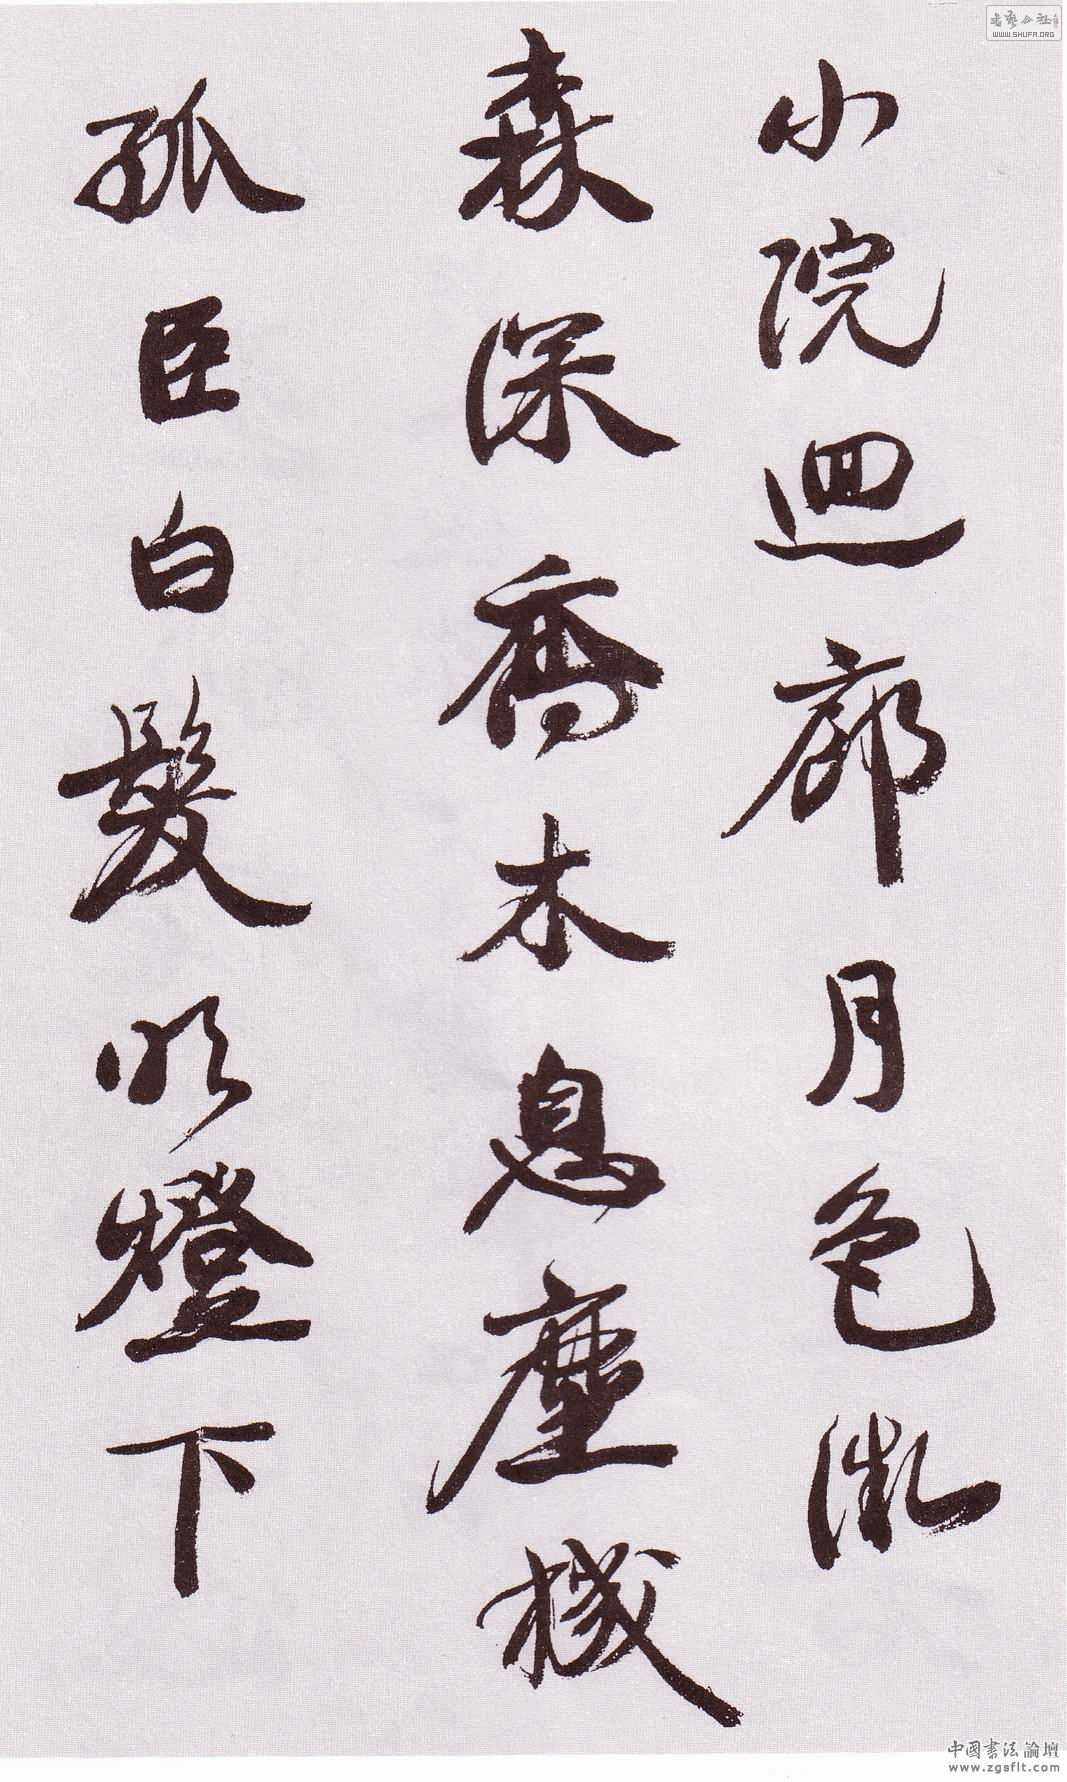 书艺公社
WWW.SHUFA.ORG
小院迴廊月色微
森深喬木息塵機
孤臣白髮燈下
中國書法論壇
www.zgsflt.com